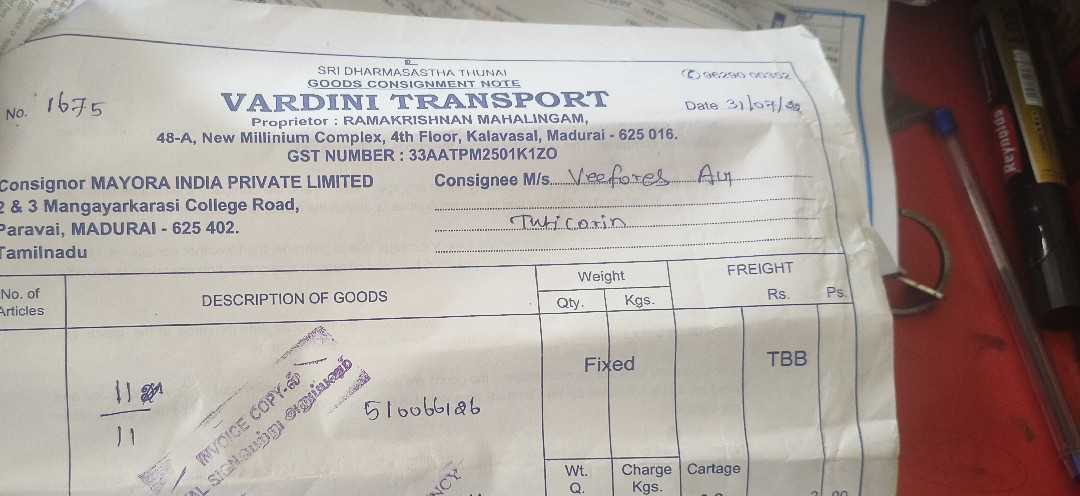 SRI DHARMASASTHA THUNAI
GOODS CONSIGNMENT NOTE
✆ 96290 00352
No. 1675
VARDINI TRANSPORT
Date 31/07/
Proprietor : RAMAKRISHNAN MAHALINGAM,
48-A, New Millinium Complex, 4th Floor, Kalavasal, Madurai - 625 016.
GST NUMBER : 33AATPM2501K1ZO
Consignor MAYORA INDIA PRIVATE LIMITED
2 & 3 Mangayarkarasi College Road,
Paravai, MADURAI - 625 402.
Tamilnadu
Consignee M/s. Veefores
Tuticorin
No. of Articles
DESCRIPTION OF GOODS
Weight
Qty. Kgs.
FREIGHT
Rs. Ps.
11
11
510066186
Fixed
TBB
INVOICE COPY-ல்
SIGN
Wt. Q.
Charge Kgs.
Cartage
Reynolds